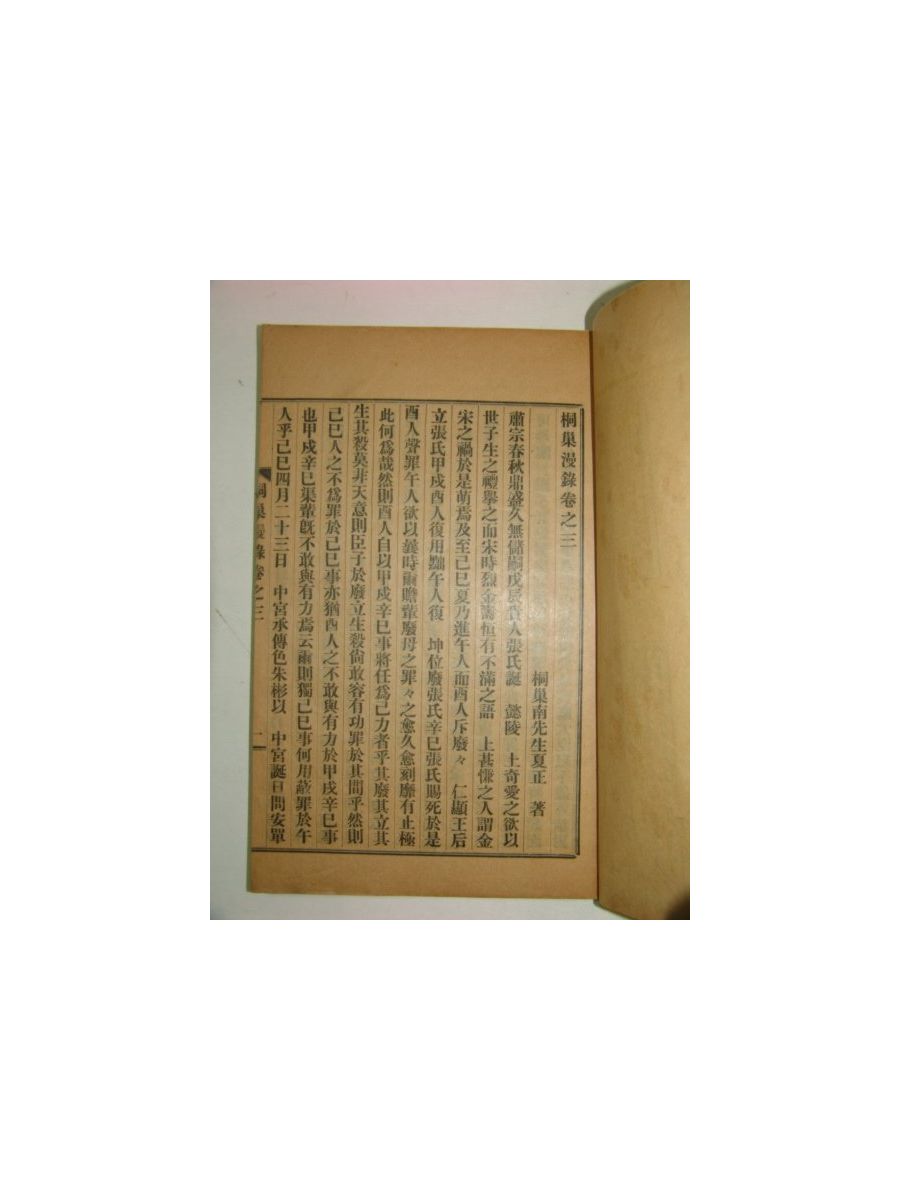 桐巢漫錄卷之三
桐巢南先生夏正 著
肅宗春秋鼎盛久無儲嗣戊辰貴人張氏誕 懿陵 上奇愛之欲以
世子生之禮舉之而宋時烈金壽恒有不滿之語 上甚慊之人謂金
宋之禍於是萌焉及至己巳夏乃進午人而酉人斥廢々 仁顯王后
立張氏甲戌酉人復用黜午人復 坤位廢張氏辛巳張氏賜死於是
酉人聲罪午人欲以曩時爾瞻輩廢母之罪々之愈久愈刻靡有止極
此何爲哉然則酉人自以甲戌辛巳事將任爲己力者乎其廢其立其
生其殺莫非天意則臣子於廢立生殺尙敢容有功罪於其間乎然則
己巳人之不爲罪於己巳事亦猶酉人之不敢與有力於甲戌辛巳事
也甲戌辛巳渠輩旣不敢與有力焉云爾則獨己巳事何用蔽罪於午
人乎己巳四月二十三日 中宮承傳色朱彬以 中宮誕日問安單
桐巢漫錄卷之三 一